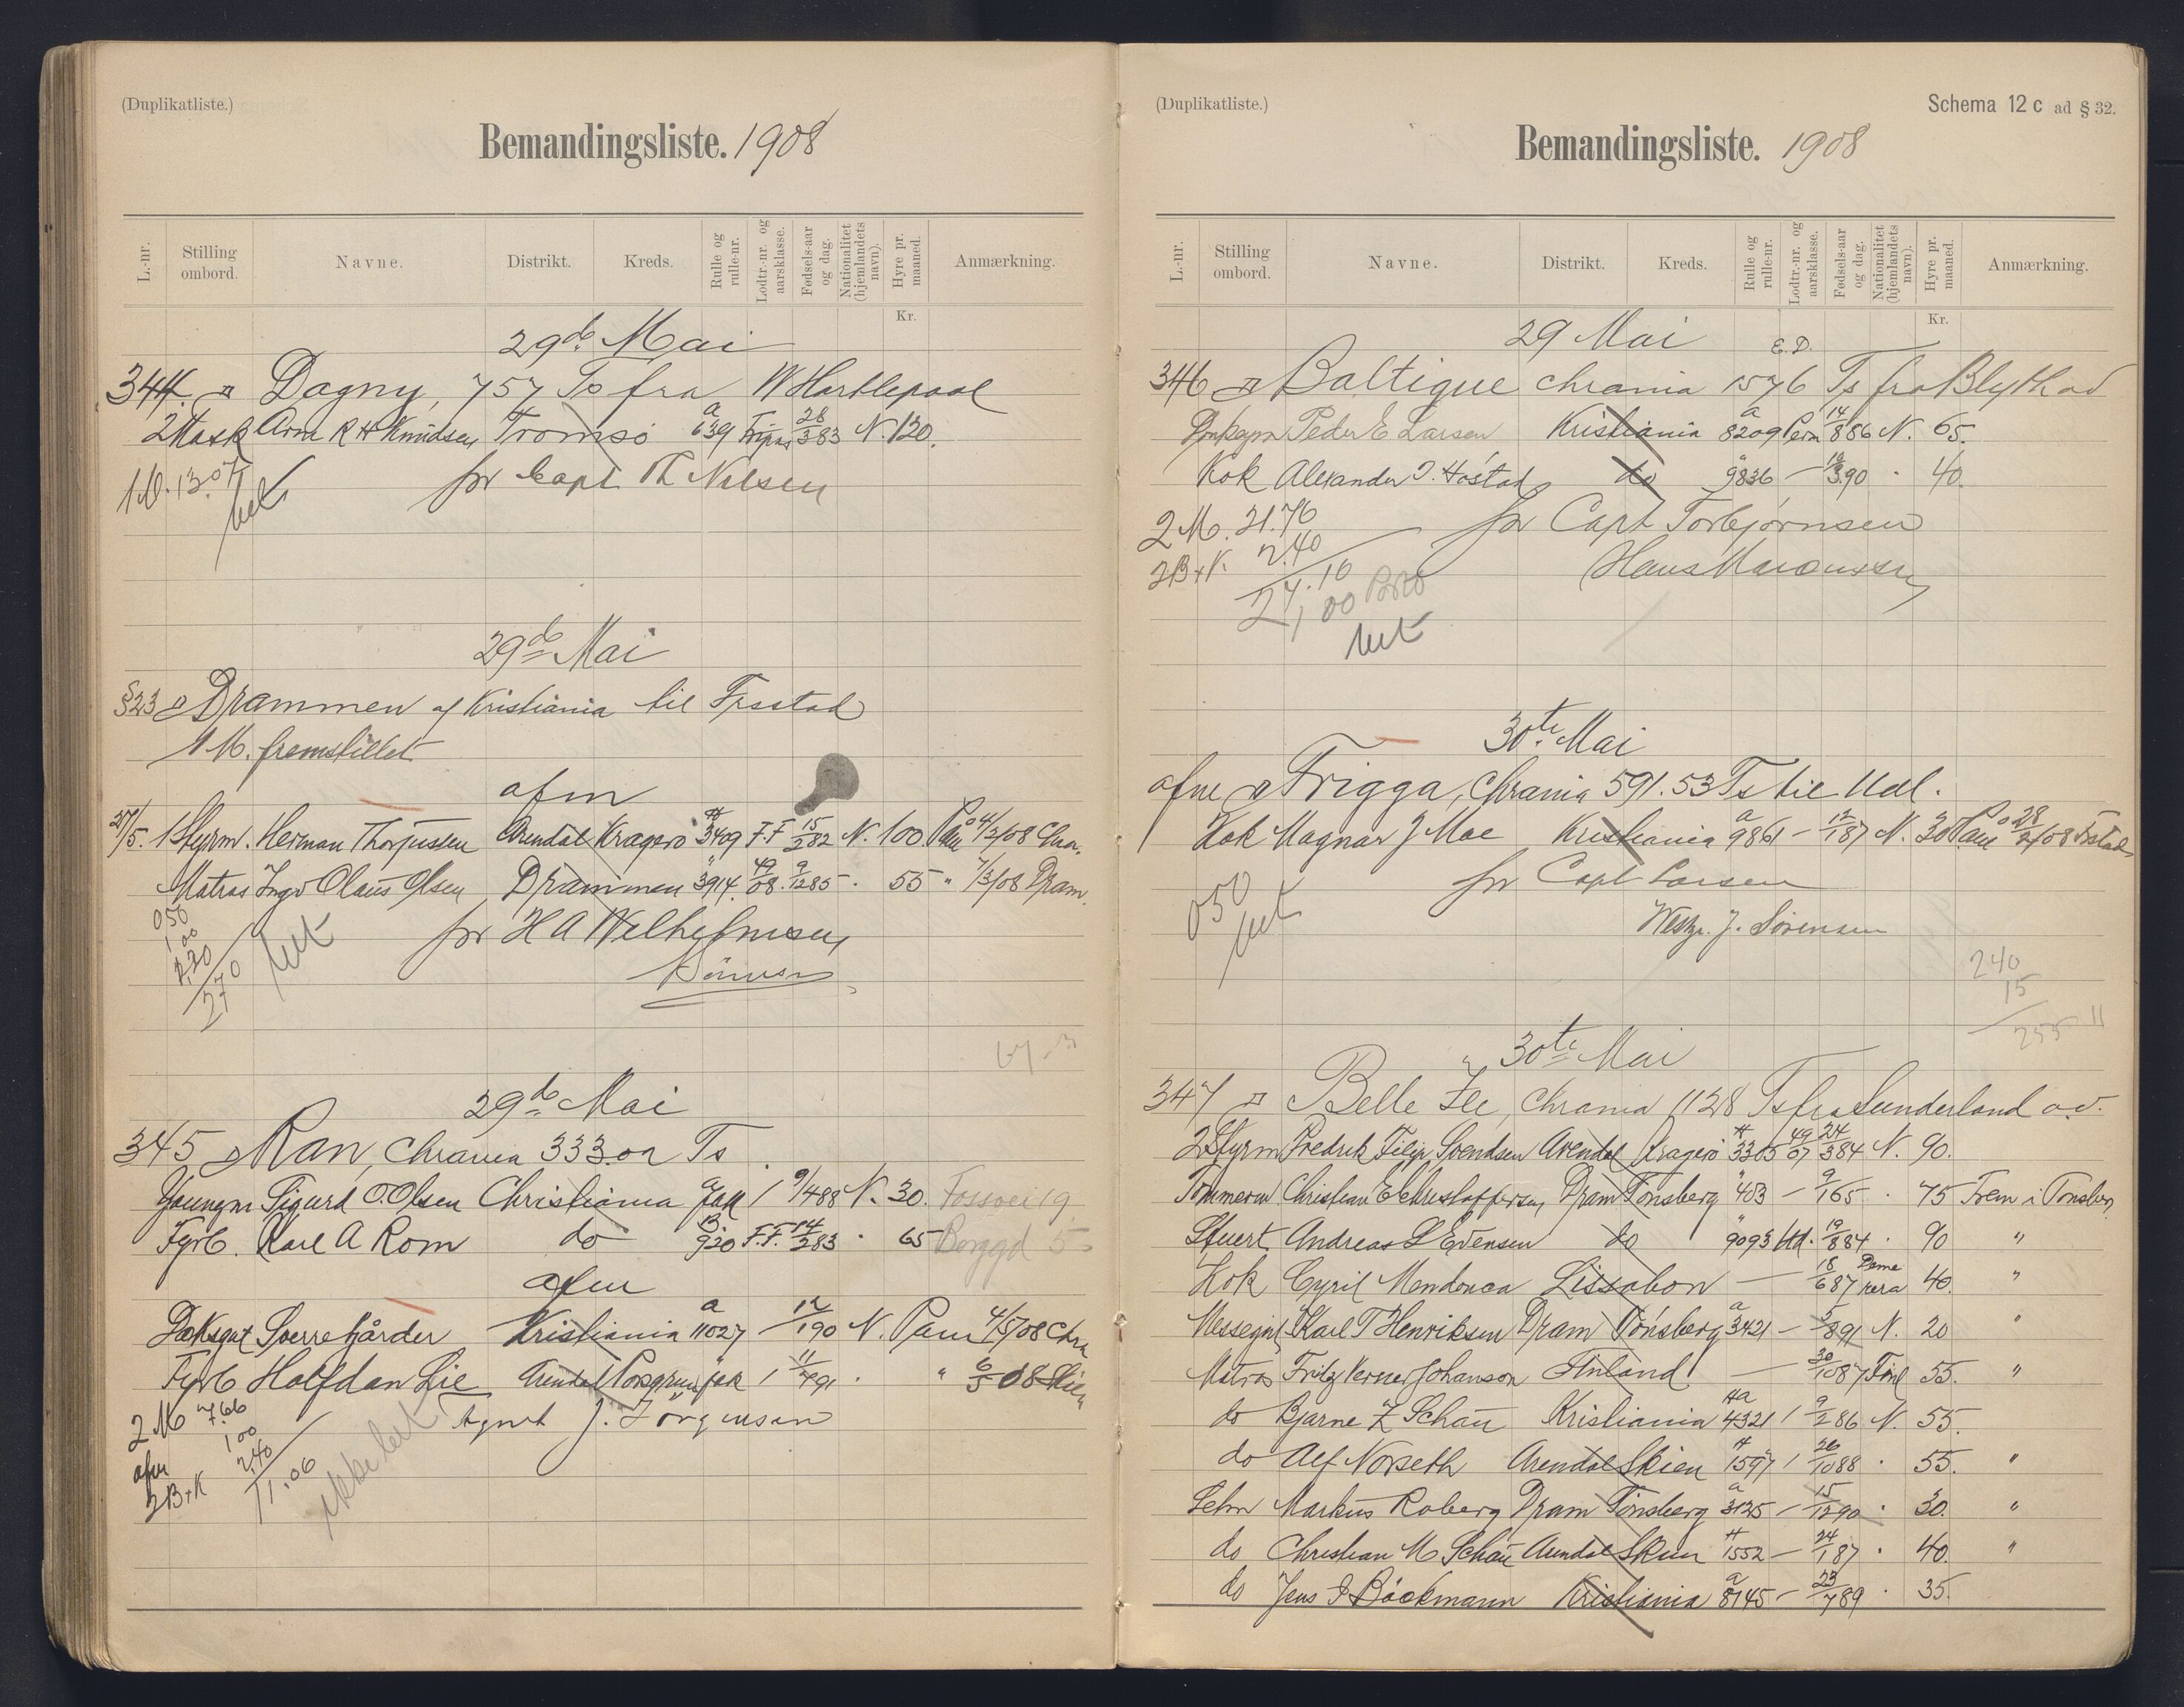 (Duplikatliste.)
Bemandingsliste. 1908
L.-nr. Stilling ombord. Navne. Distrikt. Kreds. Rulle og rulle-nr. Lodtr.-nr. og aarsklasse. Fødsels-aar og dag. Nationalitet (hjemlandets navn). Hyre pr. maaned. Anmærkning.
Kr.
29de Mai
344 Dagny, 757 Ts fra W Hartlepool
2 Mask Arne R H Knudsen Tromsö a 639 28/3 83 N. 130.
for Capt Th Nilsen
29de Mai
§23 Drammen af Kristiania til Frstad
1 M. fremstillet
afm
27/5. 1 Styrm. Herman Thorjussen Arendal Kragerö 3409 F.F 15/2 82 N. 100 4/3/08 Chra.
Matros Ingv Olaus Olsen Drammen 3914 49/08 9/12 85 · 55 " 7/3/08 Dram.
050
100
270
for H A Wilhelmsen
29de Mai
345 Ran, Chrania 333.02 Ts
Youngm Sigurd O. Olsen Christiania 1 9/4 88 N. 30. Fossvei 19
Fyrb. Karl A Rom do B. 920 F.F. 14/2 83 · 65 Borggd 5
afm
Dæksgut Sverre Gårder Kristiania a 11027 – 12/1 90 N. Paam 4/5/08 Chra
Fyrb Halfdan Lie Arendal Porsgrund 1 11/7 91 · " 6/5 08 Skien
2 M 7.66
afm 1 00
2 B+K 2.40
11.06
ikke bet
Agent J. Jörgensen
(Duplikatliste.)
Schema 12 c ad § 32.
Bemandingsliste. 1908
L.-nr. Stilling ombord. Navne. Distrikt. Kreds. Rulle og rulle-nr. Lodtr.-nr. og aarsklasse. Fødsels-aar og dag. Nationalitet (hjemlandets navn). Hyre pr. maaned. Anmærkning.
Kr.
29 Mai E.D.
346 Baltique Chrania 1576 Ts fra Blyth
Peder E Larsen Kristiania a 8209 Perm 14/8 86 N. 65.
Kok Alexander I. Höstad do 9836 – 3 90 · 40.
for Capt Torbjörnsen
2 M. 21.70
2 B+K 2.40
24.10
bet
30te Mai
afm Frigga, Chrania 591.53 Ts til Udl.
Kok Magnar J Moe Kristiania a 9861 – 12/1 87 N. 30 Paam 28/2/08 Frstad
050
bet
for Capt Larsen
J. Sörensen
240
15
255
30te Mai
347 Belle Ile, Chrania 1128 Ts fra Sunderland
2 Styrm Fredrik Filip Svendsen Arendal Kragerö 3305 49/07 24/3 84 N. 90.
Tömmerm Christian E Christoffersen Dram Tönsberg 403 – 9/1 65 · 75 Frem i Tönsberg
Stuert Andreas L Evensen do 9093 Utd. 19/8 84 · 90 "
Kok Cyril Mendonca Lissabon – 18/6 87 Demerara 40. "
Messegut Karl T Henriksen Dram Tönsberg a 3421 – 5/8 91 N. 20 "
Matros Fritz Verner Johanson Finland – 30/10 87 Finl 55. "
do Bjarne Z Schau Kristiania 4321 1 9/2 86 N. 55.
do Alf Norseth Arendal Skien 1597 1 26/10 88 · 55. "
Letm Markus Roberg Dram Tönsberg a 3125 – 15/12 90 · 30. "
do Christian M Schau Arendal Skien 1552 – 24/1 87 · 40. "
do Jens P Böckmann Kristiania a 8145 – 23/7 89 · 35.